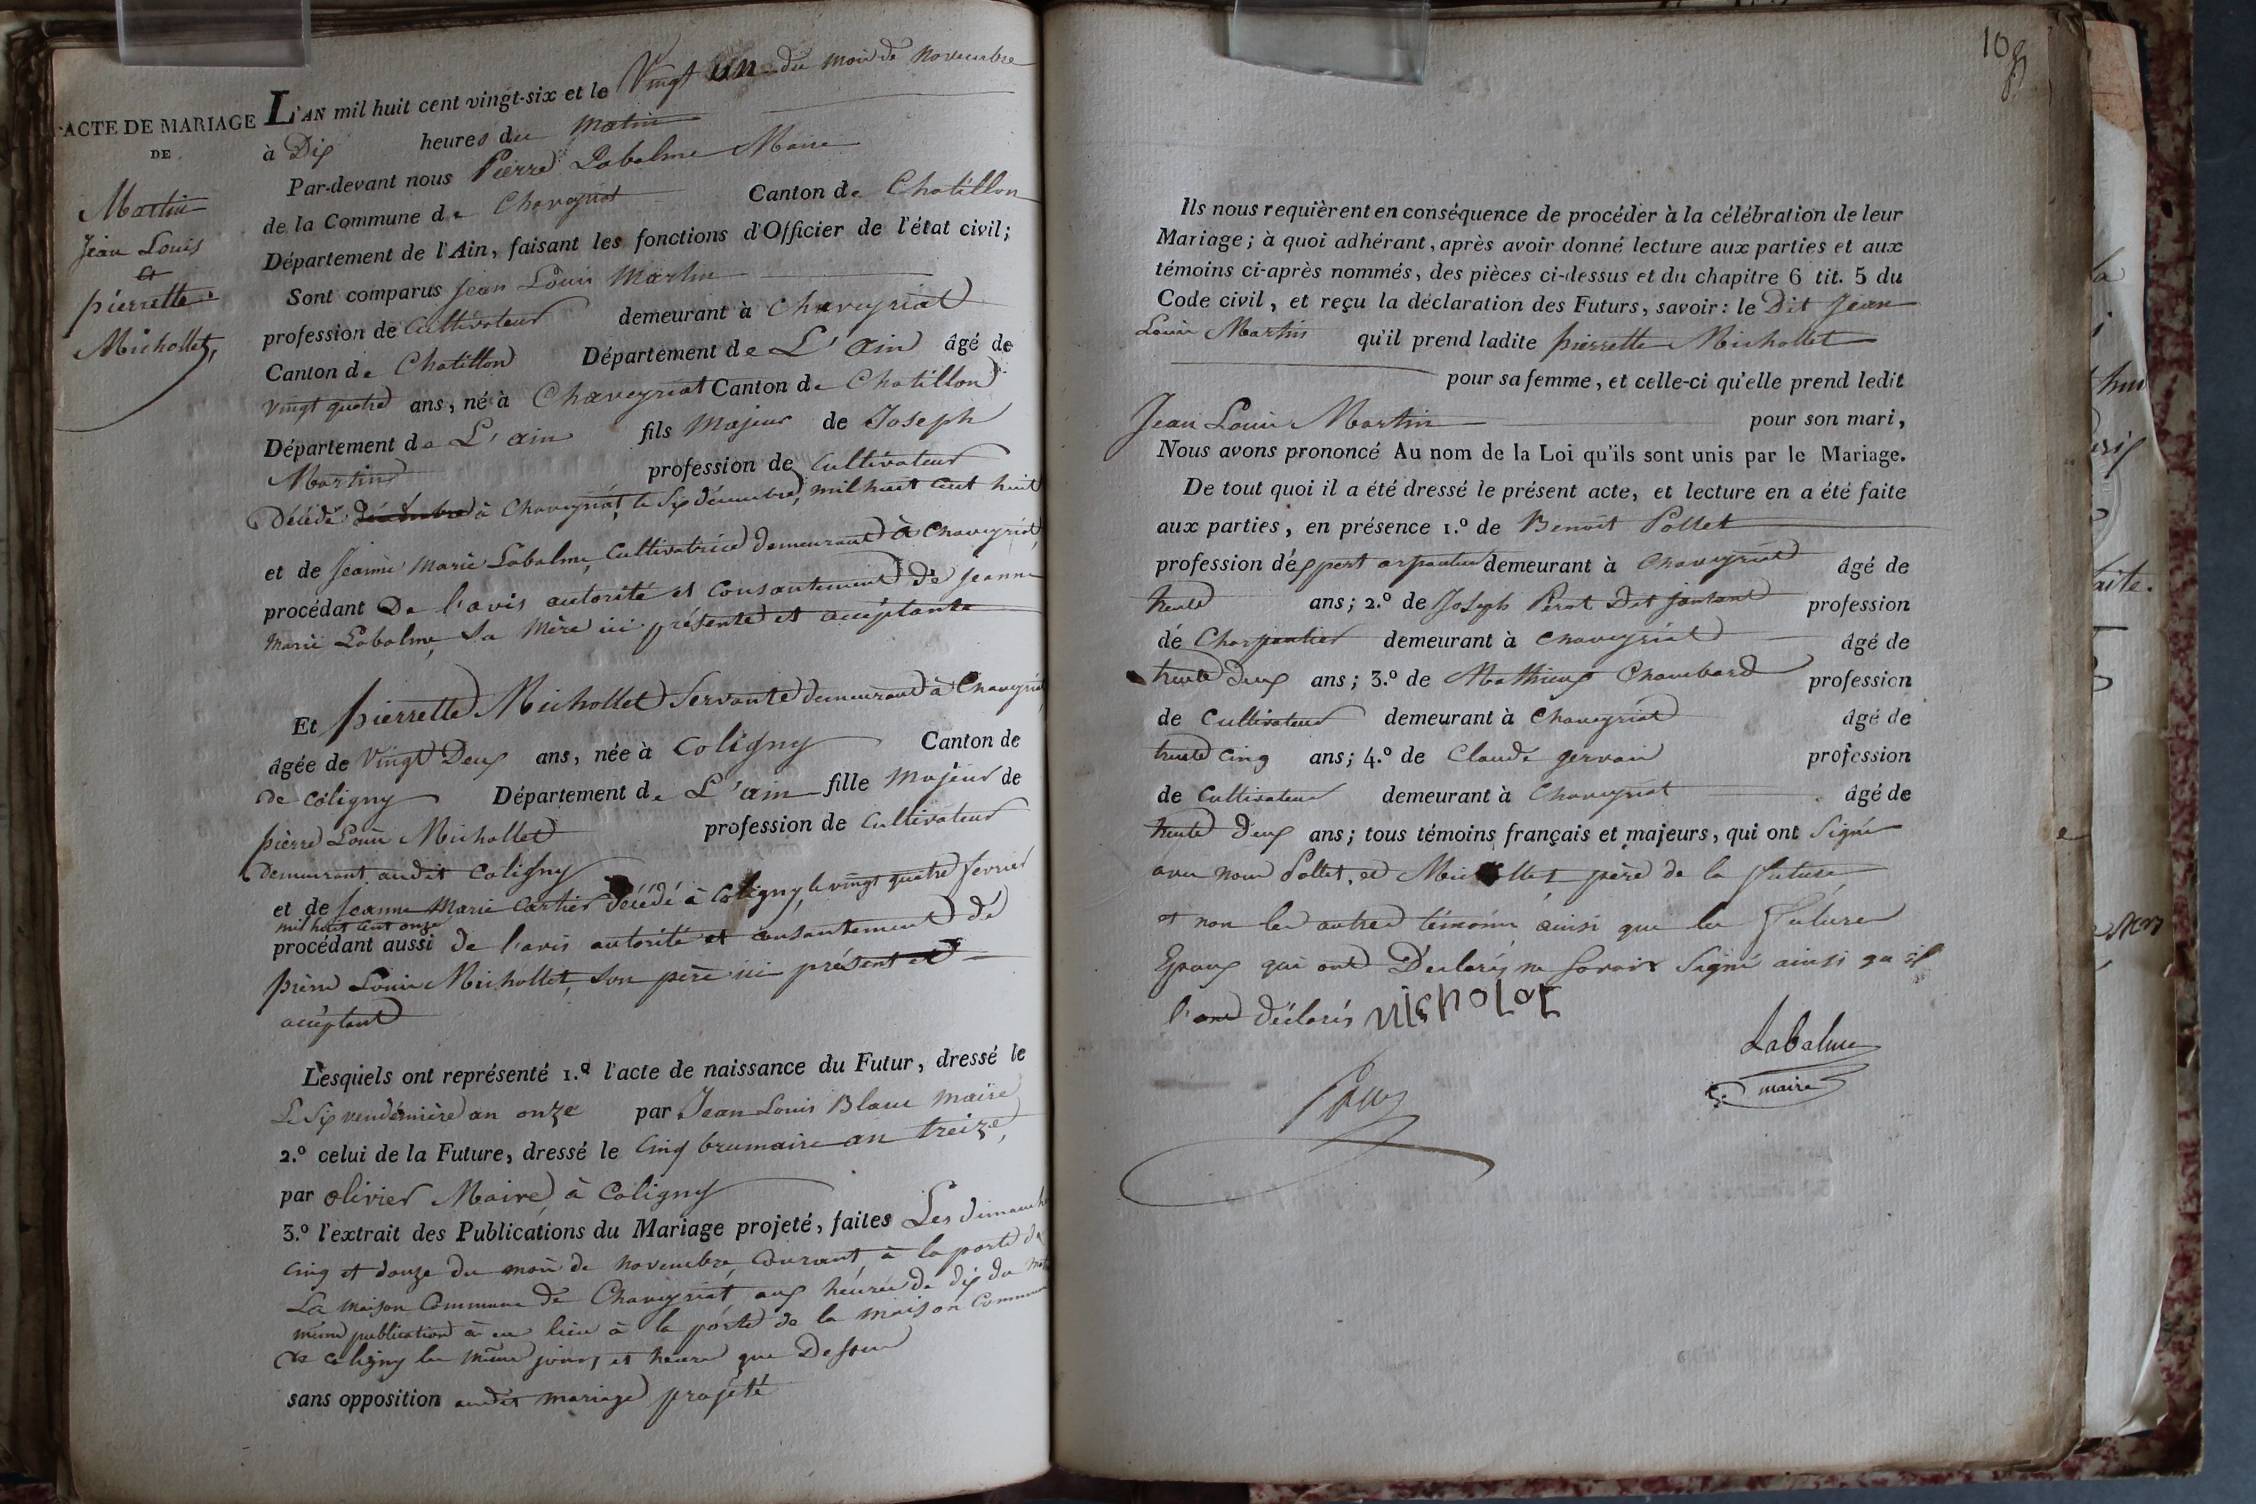 ACTE DE MARIAGE
DE
Martin
Jean Louis
et
pierrette
Michollet,
L'AN mil huit cent vingt-six et le Vingt un du mois de Novembre
à Dix heures du matin
Par-devant nous Pierre Labalme Maire
de la Commune de Chaveyriat Canton de Chatillon
Département de l'Ain, faisant les fonctions d'Officier de l'état civil;
Sont comparus Jean Louis Martin
profession de Cultivateur demeurant à Chaveyriat
Canton de Chatillon Département de L'ain âgé de
vingt quatre ans, né à Chaveyriat Canton de Chatillon
Département de L'ain fils Majeur de Joseph
Martin profession de Cultivateur
Décédé à Chaveyriat, le Six décembre, mil huit cent huit
et de Jeanne Marie Labalme, Cultivatrice demeurant à Chaveyriat,
procédant De l'avis autorité et consantement de Jeanne
Marie Labalme, sa Mère ici présente et acceptante
Et pierrette Michollet Servante demeurant à Chaveyriat,
âgée de Vingt Deux ans, née à Coligny Canton de
de Coligny Département de L'ain fille Majeur de
pierre Louis Michollet profession de Cultivateur
Demeurant audit Coligny
et de Jeanne Marie Cartier Décédé à Coligny, le vingt quatre fevrier
mil huit cent onze
procédant aussi de l'avis autorité et consantement dé
pierre Louis Michollet, son père ici présent et
acceptant
Lesquels ont représenté 1.º l'acte de naissance du Futur, dressé le
Le Six vendémière an onze par Jean Louis Blanc maire
2.º celui de la Future, dressé le Cinq brumaire an treize,
par olivier Maire, à Coligny
3.º l'extrait des Publications du Mariage projeté, faites Les dimanche
cinq et douze du mois de novembre courant, à la porte de
La maison Commune de Chaveyriat, aux heures de dix du
même publication à eu lieu à la porte de la maison Commune
de Coligny les même jours et heure que Dessus
sans opposition audit mariage projété
108
Ils nous requièrent en conséquence de procéder à la célébration de leur
Mariage; à quoi adhérant, après avoir donné lecture aux parties et aux
témoins ci-après nommés, des pièces ci-dessus et du chapitre 6 tit. 5 du
Code civil, et reçu la déclaration des Futurs, savoir: le Dit Jean
Louis Martin qu'il prend ladite pierrette Michollet
pour sa femme, et celle-ci qu'elle prend ledit
Jean Louis Martin pour son mari,
Nous avons prononcé Au nom de la Loi qu'ils sont unis par le Mariage.
De tout quoi il a été dressé le présent acte, et lecture en a été faite
aux parties, en présence 1.º de Benoit Pollet
profession déxpert arpenteur demeurant à Chaveyriat âgé de
trente ans; 2.º de Joseph Perat Dit profession
dé Charpentier demeurant à Chaveyriat âgé de
trente Deux ans; 3.º de Mathieux Chambard profession
de Cultivateur demeurant à Chaveyriat âgé de
trente cinq ans; 4.º de Claude gervais profession
de Cultivateur demeurant à Chaveyriat âgé de
trente deux ans; tous témoins français et majeurs, qui ont Signé
avec nous Pollet, et Michollet père de la future
et non les autres témoins ainsi que les futures
Epoux qui ont Déclarés ne Savoir Signé ainsi qu'il
l'ont déclarés MICHOLET
Labalme
maire